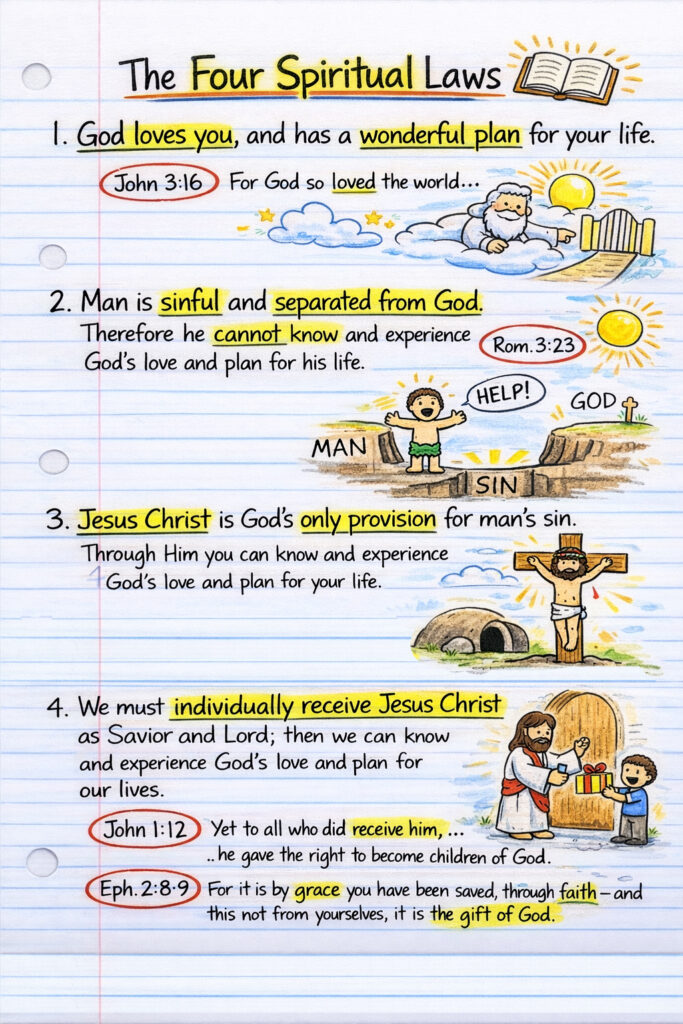 The Four Spiritual Laws
1. God loves you, and has a wonderful plan for your life.
John 3:16 For God so loved the world...
2. Man is sinful and separated from God.
Therefore he cannot know and experience
God's love and plan for his life.
Rom. 3:23
HELP!
GOD
MAN
SIN
3. Jesus Christ is God's only provision for man's sin.
Through Him you can know and experience
God's love and plan for your life.
4. We must individually receive Jesus Christ
as Savior and Lord; then we can know
and experience God's love and plan for
our lives.
John 1:12 Yet to all who did receive him, ...
..he gave the right to become children of God.
Eph. 2:8-9 For it is by grace you have been saved, through faith – and
this not from yourselves, it is the gift of God.